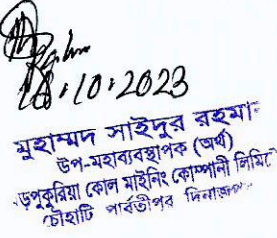 18.10.2023
মুহাম্মদ সাইদুর রহমা
উপ-মহাব্যবস্থাপক (অর্থ)
ড়পুকুরিয়া কোল মাইনিং কোম্পানী লিমিটে
চৌহাটি পার্বতীপুর দিনাজপ